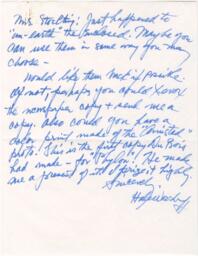 Mrs. Stockley: Just happened to
"un-earth" the enclosed. Maybe you
can use them in some way you may
choose –
Would like them back if possible.
If not, perhaps you could xerox
the newspaper copy & send me a
copy. Also could you have a
print made of the
photo. This is the first copy Du Bois
had made – for He made
me a present of it & I prize it highly.
Sincerely